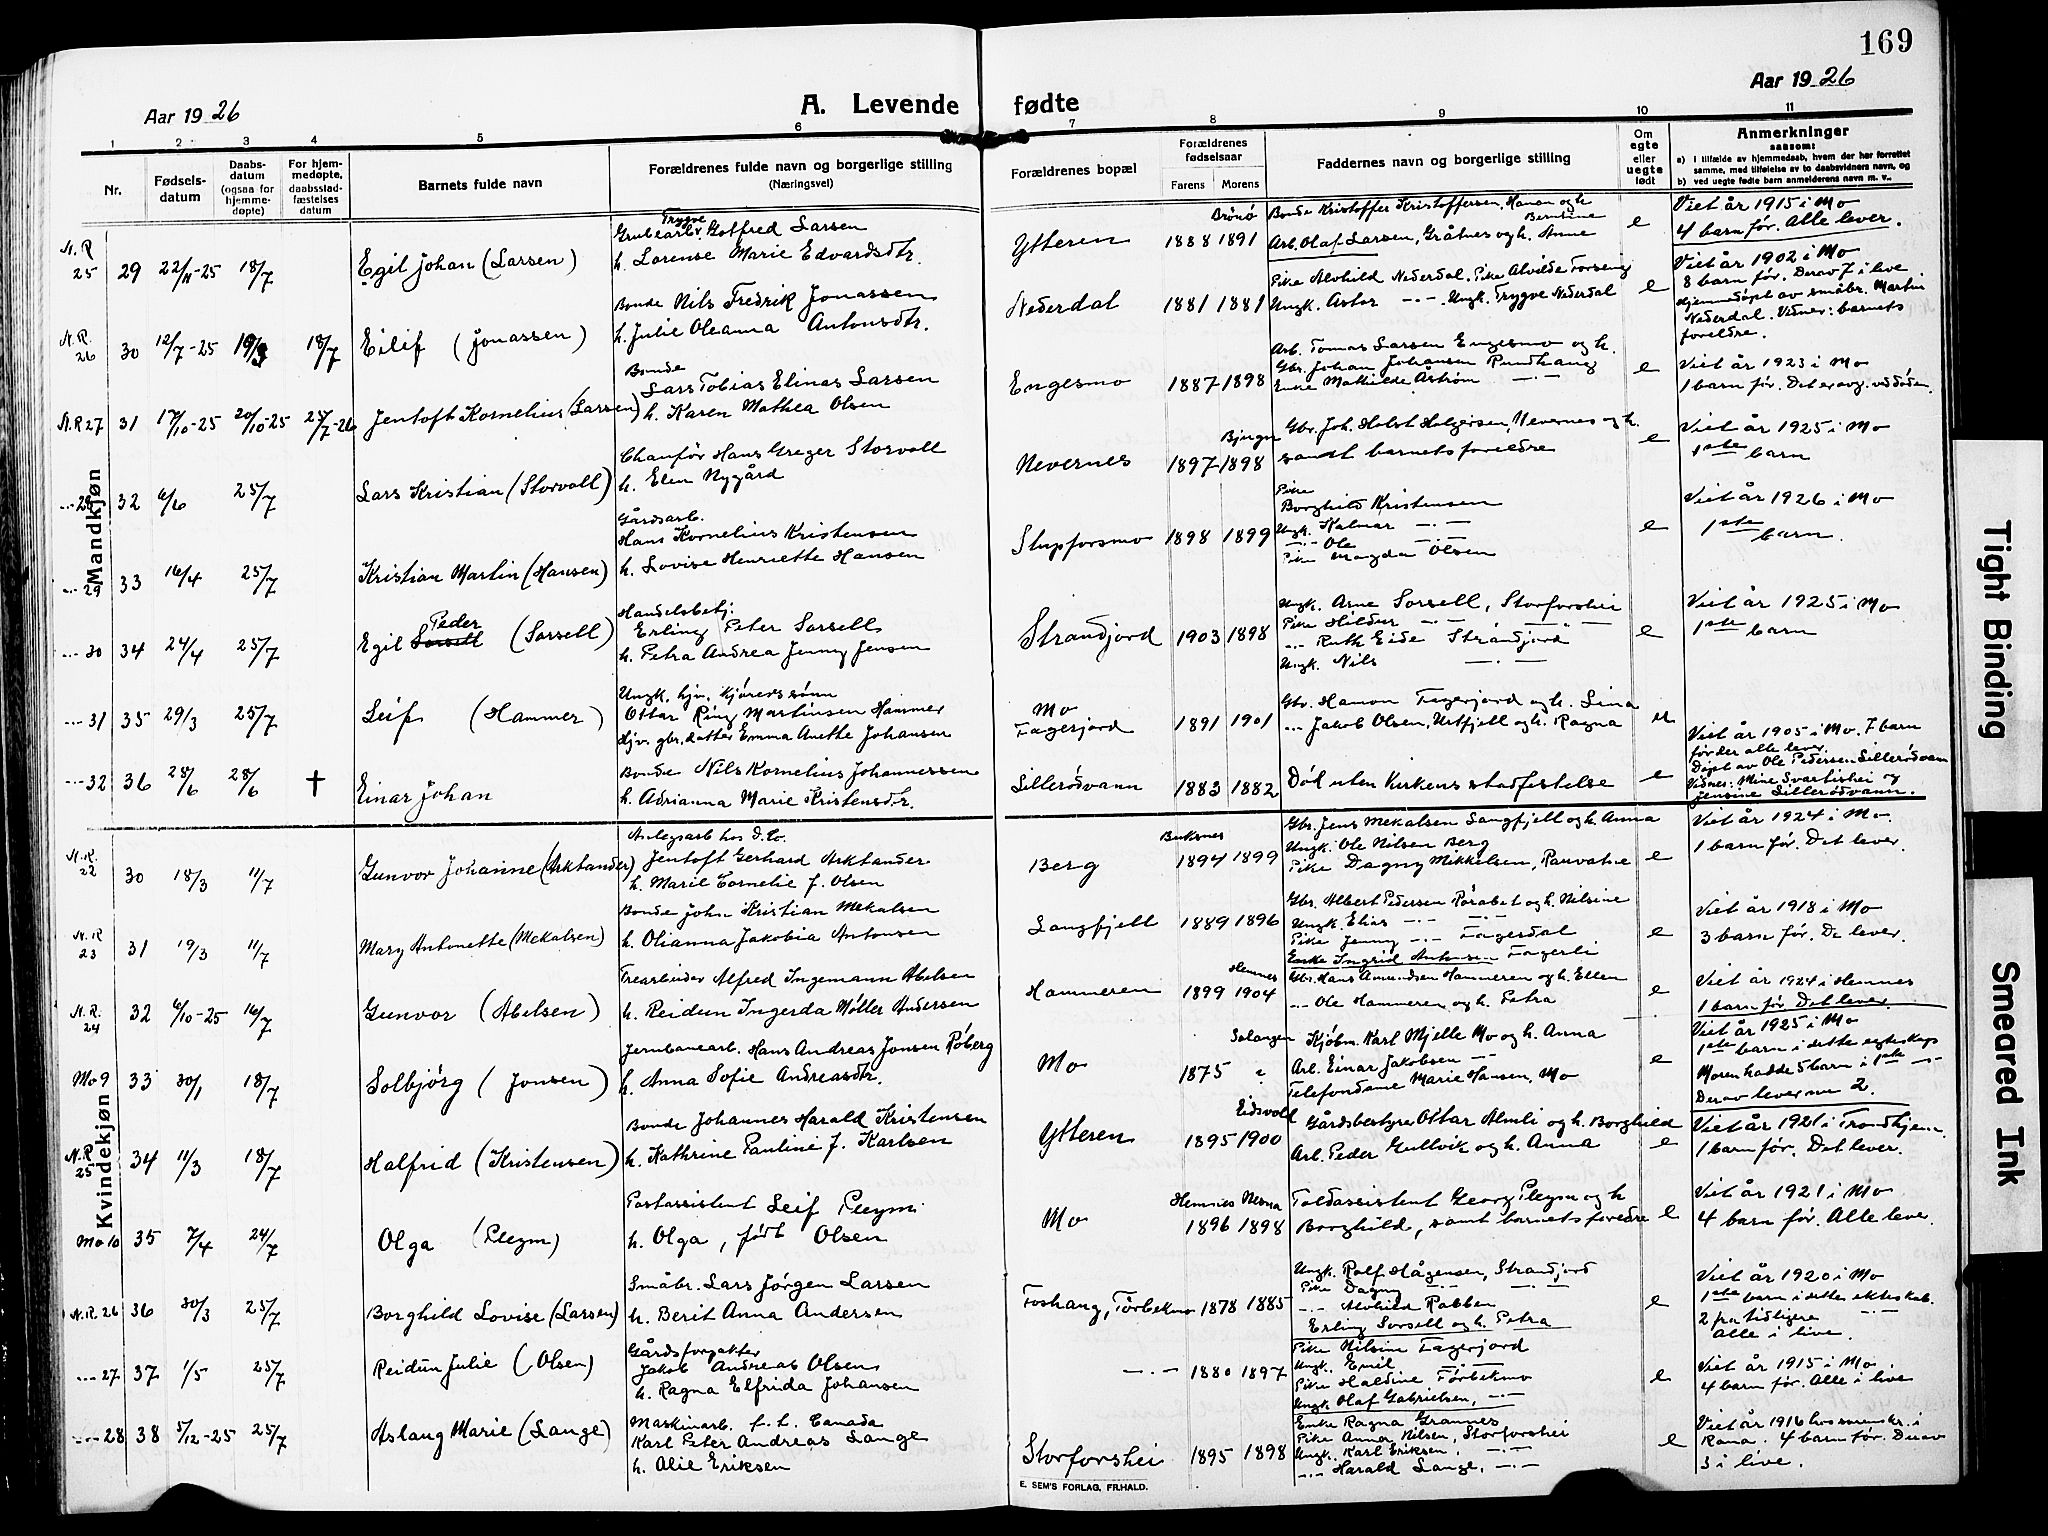 169
Aar 1926
A. Levende fødte
Aar 1926
1 2 3 4 5 6 7 8 9 10 11
Nr.
Fødsels-datum
Daabs-datum (ogsaa for hjemme-døpte)
For hjem-medøpte, daabsstad-fæstelses datum
Barnets fulde navn
Forældrenes fulde navn og borgerlige stilling
(Næringsvei)
Forældrenes bopæl
Forældrenes fødselsaar
Farens Morens
Faddernes navn og borgerlige stilling
Om egte eller uegte født
Anmerkninger
saasom:
a) I tilfælde av hjemmedaab, hvem der har forrettet samme, med tilføielse av to daabsvidners navn, og
b) ved uegte fødte barn anmelderens navn m. v..
Mandkjøn
N.R. 25 29 22/11-25 18/7 Egil Johan (Larsen)
Grubearb. Trygve Gotfred Larsen
h. Lorense Marie Edvardsdtr.
Ytteren 1888 Brönö 1891
Bonde Kristoffer Kristoffersen, Hanan og h. Berntine
Arb. Olaf Larsen, Gråtnes og h. Anne
e
Viet år 1915 i Mo
4 barn før. Alle lever.
N.R. 26 30 12/7-25 19/9 18/7 Eilif (Jonassen)
Bonde Nils Fredrik Jonassen
h. Julie Oleanna Antonsdtr.
Nederdal 1881 1881
Pike Alvhild Nederdal, Pike Alvilde Forseng
Ungk. Astor -·- Ungk. Trygve Nederdal
e
Viet år 1902 i Mo
8 barn før. Derav 7 i live
Hjemmedøpt av småbr. Martin
Nederdal. Vidner: barnets
foreldre.
N.R. 27 31 17/10-25 20/10-25 25/7-26 Jentoft Kornelius (Larsen)
Bonde
Lars Tobias Elinas Larsen
h. Karen Mathea Olsen
Engesmo 1887 1898
Arb. Tomas Larsen Engesmo og h.
Gbr. Johan Johansen Rundhaug
Enke Mathilde Åström -·-
e
Viet år 1923 i Mo
1 barn før. Det er avg. ved døden.
-·- 28 32 6/6 25/7 Lars Kristian (Storvoll)
Chauför Hans Greger Storvoll
h. Elen Nygård
Nevernes 1897 Bjugn 1898
Gbr. Joh. Holst Holgersen, Nevernes og h.
samt barnets foreldre
e
Viet år 1925 i Mo
1ste barn
-·- 29 33 16/4 25/7 Kristian Martin (Hansen)
Gårdsarb.
Hans Kornelius Kristensen
h. Lovise Henriette Hansen
Stupforsmo 1898 1899
Pike
Borghild Kristensen
Ungk. Halvar -·-
-·- Ole -·-
Pike Magda Olsen
e
Viet år 1926 i Mo
1ste barn.
-·- 30 34 24/4 25/7 Egil Peder Sorsell (Sorsell)
Handelsbetj.
Erling Peter Sorsell
h. Petra Andrea Jenny Jensen
Strandjord 1903 1898
Ungk. Arne Sorsell, Storforshei
Pike Hildur -·- -·-
-·- Ruth Eide Strandjord
Ungk. Nils -·-
e
Viet år 1925 i Mo
1ste barn
-·- 31 35 29/3 25/7 Leif (Hammer)
Ungk. hjv. kjörers sönn
Ottar Ring Martinsen Hammer
Hjv. gbr. datter Emma Anette Johansen
Mo
Fagerjord 1891 1901
Gbr. Hanon Fagerjord og h. Lina
-·- Jakob Olsen, Urtfjell og h. Ragna
u
-·- 32 36 28/6 28/6 † Einar Johan
Bonde Nils Kornelius Johannessen
h. Adrianna Marie Kristensdtr.
Lillerödvann 1883 1882
Död uten Kirkens stadfestelse
e
Viet år 1905 i Mo. 7 barn
før der alle lever.
Döpt av Ole Pedersen Lillerödvann
Vidnes: Mine Svartishei og
Jensine Lillerödvann.
Kvindekjøn
N.R. 22 30 18/3 11/7 Gunvor Johanne (Arktander)
Anlegsarb hos D. to.
Jentoft Gerhard Arktander
h. Marie Cornelie f. Olsen
Berg Buksnes 1894 1899
Gbr. Jens Mekalsen Langfjell og h. Anna
Ungk. Ole Nilsen Berg
Pike Dagny Mikkelsen, Rauvatne
e
Viet år 1924 i Mo.
1 barn før. Det lever.
N.R. 23 31 19/3 11/7 Mary Antonette (Mekalsen)
Bonde John Kristian Mekalsen
h. Olianna Jakobia Antonsen
Langfjell 1889 1896
Gbr. Albert Pedersen Rørabet og h. Nilsine
Ungk. Elias -·- -·-
Pike Jenny -·- Fagerdal
Enke Ingrid Antonsen Fagerli
e
Viet år 1918 i Mo
3 barn før. De lever.
N.R. 24 32 6/10-25 16/7 Gunvor (Abelsen)
Trearbeider Alfred Ingemann Abelsen
h. Reidun Ingerda Møller Andersen
Hammeren 1899 Hemnes 1904
Gbr. Hans Amundsen Hammeren og h. Ellen
-·- Ole Hammeren og h. Petra
e
Viet år 1924 i Hemnes
1 barn før. Det lever.
Mo 9 33 30/1 18/7 Solbjörg (Jonsen)
Jernbanearb. Hans Andreas Jonsen Röberg
h. Anna Sofie Andreasdtr.
Mo 1875 Salangen "
Kjöbm. Karl Mjelle Mo og h. Anna
Arb. Einar Jakobsen -·-
Telefondame Marie Hansen, Mo
e
Viet år 1925 i Mo
1ste barn i dette egteskap
Moren hadde 5 barn i 1ste -·-
Derav lever nu 2.
N.R. 25 34 11/3 18/7 Halfrid (Kristensen)
Bonde Johannes Harald Kristensen
h. Kathrine Pauline f. Karlsen
Ytteren 1895 Eidsvoll 1900
Gårdsbestyre Ottar Almli og h. Borghild
Arb. Peder Gullvik og h. Anna
e
Viet år 1921 i Trondhjem.
1 barn før. Det lever.
Mo 10 35 7/4 24/7 Olga (Pleym)
Postassistent Leif Pleym
h. Olga, födt Olsen
Mo Hemnes 1896 Nesna 1898
Toldassistent Georg Pleym og h
Borghild, samt barnets foreldre
e
Viet år 1921 i Mo
4 barn før. Alle lever.
N.R. 26 36 30/3 25/7 Borghild Lovise (Larsen)
Småbr. Lars Jörgen Larsen
h. Berit Anna Andersen
Foshaug, Förbekmo 1878 1885
Ungk. Rolf Hågensen, Strandjord
Pike Dagny -·- -·-
-·- Alvhild Rabben
Erling Sorsell og h. Petra
e
Viet år 1920 i Mo
1ste barn i dette ekteskab.
2 fra tidligere -·-
Alle i live.
-·- 27 37 1/5 25/7 Reidun Julie (Olsen)
Gårdsforpakter
Jakob Andreas Olsen
h. Ragna Elfrida Johansen
-·- 1880 1897
Pike Nilsine Fagerjord
Ungk. Emil -·-
Pike Haldine Förbekmo
Ungk Olaf Gabrielsen, -·-
e
Viet år 1915 i Mo.
4 barn før. Alle i live
-·- 28 38 5/12-25 25/7 Aslaug Marie (Lange)
Maskinarb. f. t. Canada
Karl Peter Andreas Lange
h. Alie Eriksen
Storforshei 1895 1898
Enke Ragna Grannes
Pike Anna Nilsen, Storforshei
Ungk. Karl Eriksen, -·-
-·- Harald Lange, -·-
e
Viet år 1916 hos sorenskr. i
Rana. 4 barn før. Derav
3 i live.
E. SEM'S FORLAG, FR.HALD.
Tight Binding
Smeared Ink